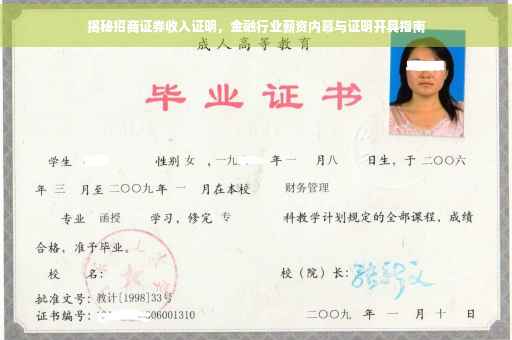 揭秘招商证券收入证明，金融行业薪资内幕与证明开具指南
成人高等教育
毕业证书
学生 性别 女 ，一九 年 一 月 八 日生，于 二〇〇六
年 三 月至 二〇〇九 年 一 月在本校 财务管理
专业 函授 学习，修完 专 科教学计划规定的全部课程，成绩
合格，准予毕业。
校 名： 校（院）长：
批准文号：教计[1998]33号
证书编号： 06001310 二〇〇九 年 一 月 十 日